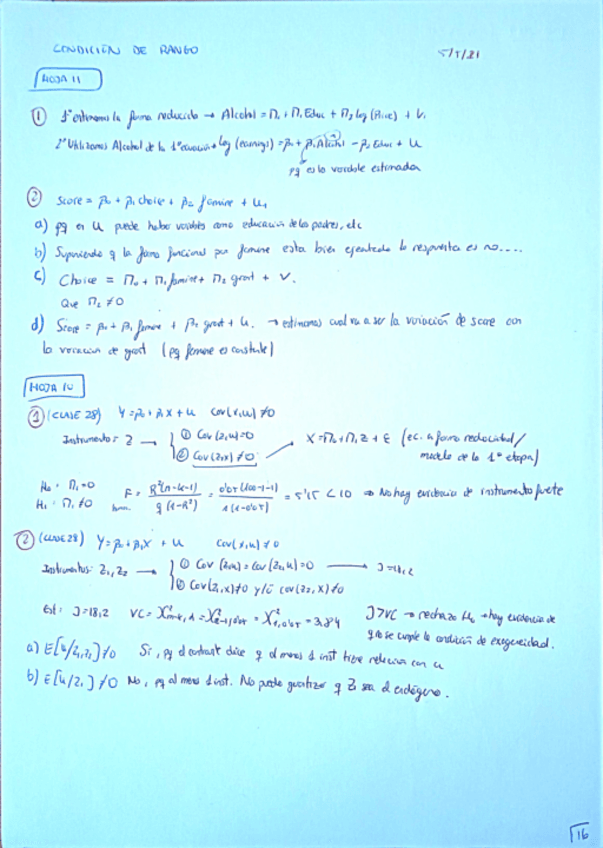 CONDICIÓN DE RANGO 5/5/21
HOJA 11
① 1º estimamos la forma reducida → Alcohol = Π₀ + Π₁ Educ + Π₂ log (Price) + V.
2º Utilizamos Alcohol de la 1º ecuación → log (earnings) = β₀ + β₁ Alcohol − β₂ Educ + u
pq es la variable estimada
② Score = β₀ + β₁ choice + β₂ famine + u₁
a) pq en u puede haber variables como educación de los padres, etc
b) Suponiendo q la forma funcional por famine esta bien ejecutada la respuesta es no....
c) Choice = Π₀ + Π₁ famine + Π₂ grant + V.
Que Π₂ ≠ 0
d) Score = β₀ + β₁ famine + β₂ grant + u. → estimamos cual va a ser la variación de score con
la variacion de grant (pq famine es constante)
HOJA 10
① (CLASE 28) Y = β₀ + β₁X + u Cov(x,u) ≠ 0
Instrumento: Z → ① Cov (z,u) = 0
② Cov (z,x) ≠ 0 → X = Π₀ + Π₁ Z + ε (ec. a forma reducida/
modelo de la 1º etapa)
H₀ = Π₁ = 0
H₁ = Π₁ ≠ 0 F = R²(n-k-1) / q (1-R²) = 0'05 (100-1-1) / 1 (1-0'05) = 5'15 < 10 ⇒ No hay evidencia de instrumento fuerte
② (CLASE 28) Y = β₀ + β₁X + u Cov(x,u) ≠ 0
Instrumentos: Z₁, Z₂ → ① Cov (z₁,u) = cov (z₂,u) = 0 → J = 18,2
② Cov(z₁,x) ≠ 0 y/ó cov(z₂,x) ≠ 0
Est: J = 18,2 VC = X²m-k, α = X²2-1, 0'05 = X²1, 0'05 = 3,84 J > VC → rechazo H₀ → hay evidencia de
q no se cumple la condición de exogeneidad.
a) E[u/z₁,z₂] ≠ 0 Si, pq el contraste dice q al menos 1 inst tiene relacion con u
b) E[u/z₁] ≠ 0 No, pq al menos 1 inst. No puede garantizar q Z₁ sea el endógeno.
16